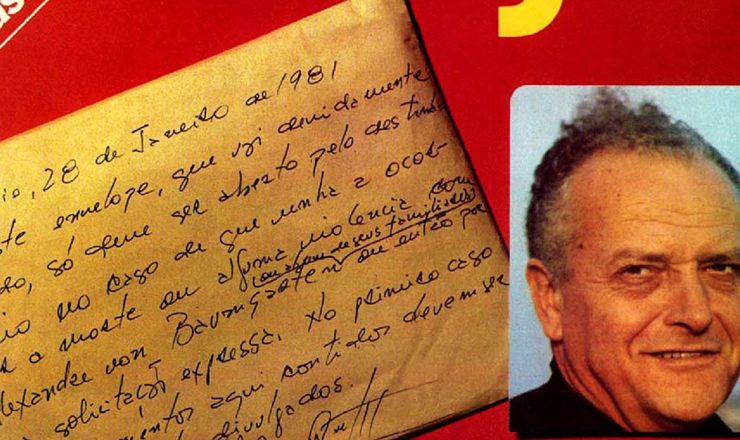 io, 28 de Janeiro de 1981
ste envelope, que vai devidamente
do, só deve ser aberto pelo destina
io no caso de que venha a ocor-
a morte ou alguma violência com
ou algum de seus familiares
lexandre von Baumgarten ou então por
solicitação expressa. No primeiro caso
mentos aqui contidos devem se
divulgados.